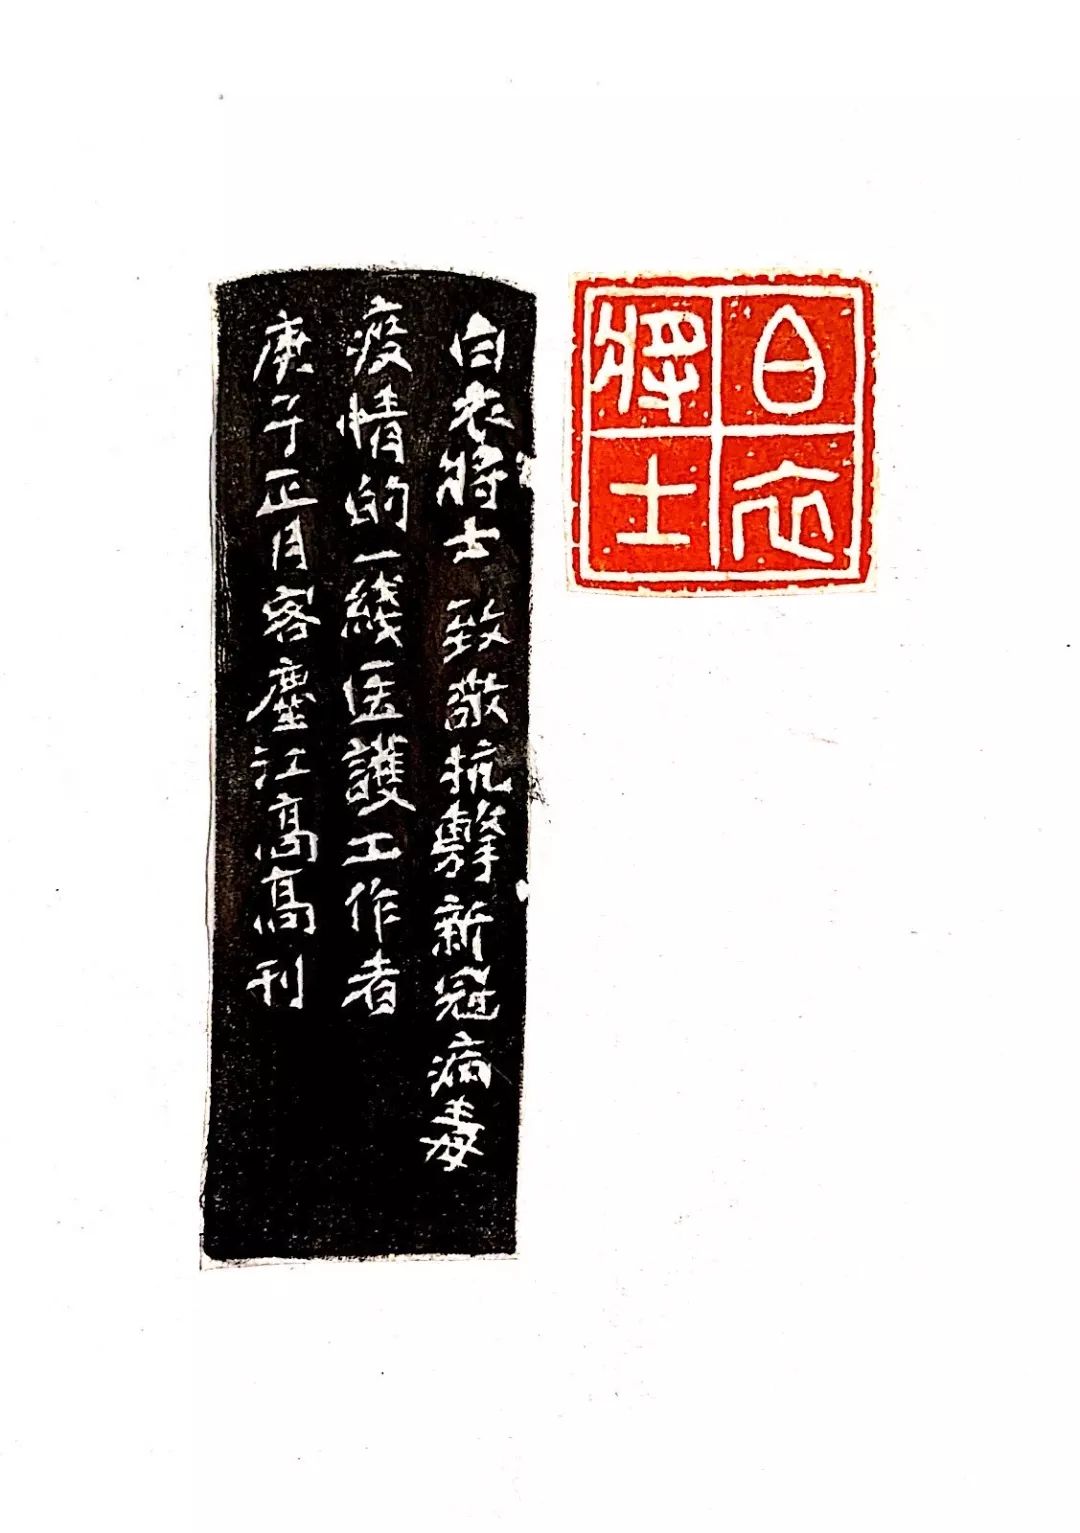 白衣
將士
白衣將士 致敬抗擊新冠病毒
疫情的一綫医護工作者
庚子正月客塵江高高刊